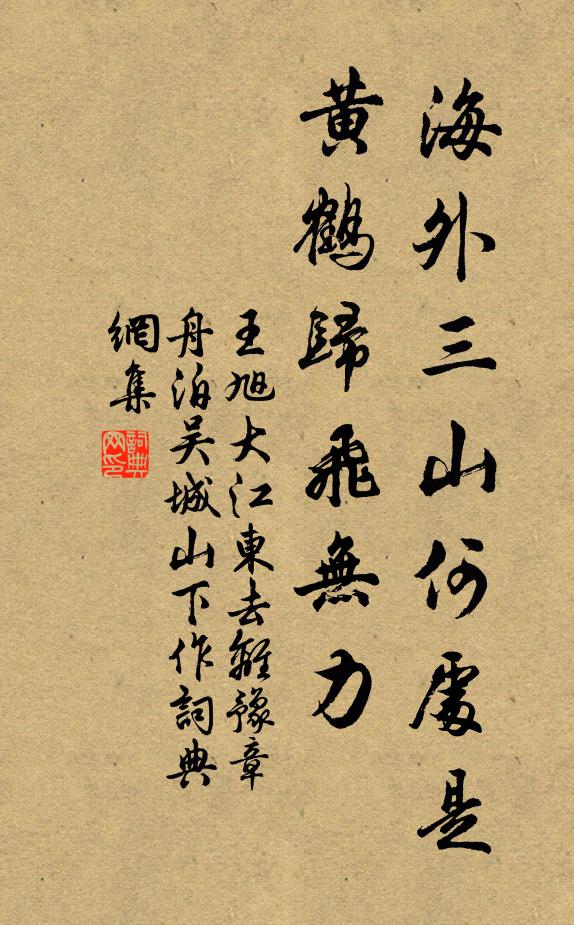 海外三山何處是
黃鶴歸飛無力
王旭大江東去離豫章
舟泊吴城山下作詞典
網集
詞典
网印